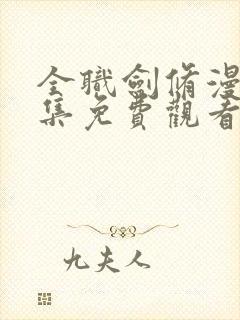 全職劍脩漫
集免費觀看
九夫人